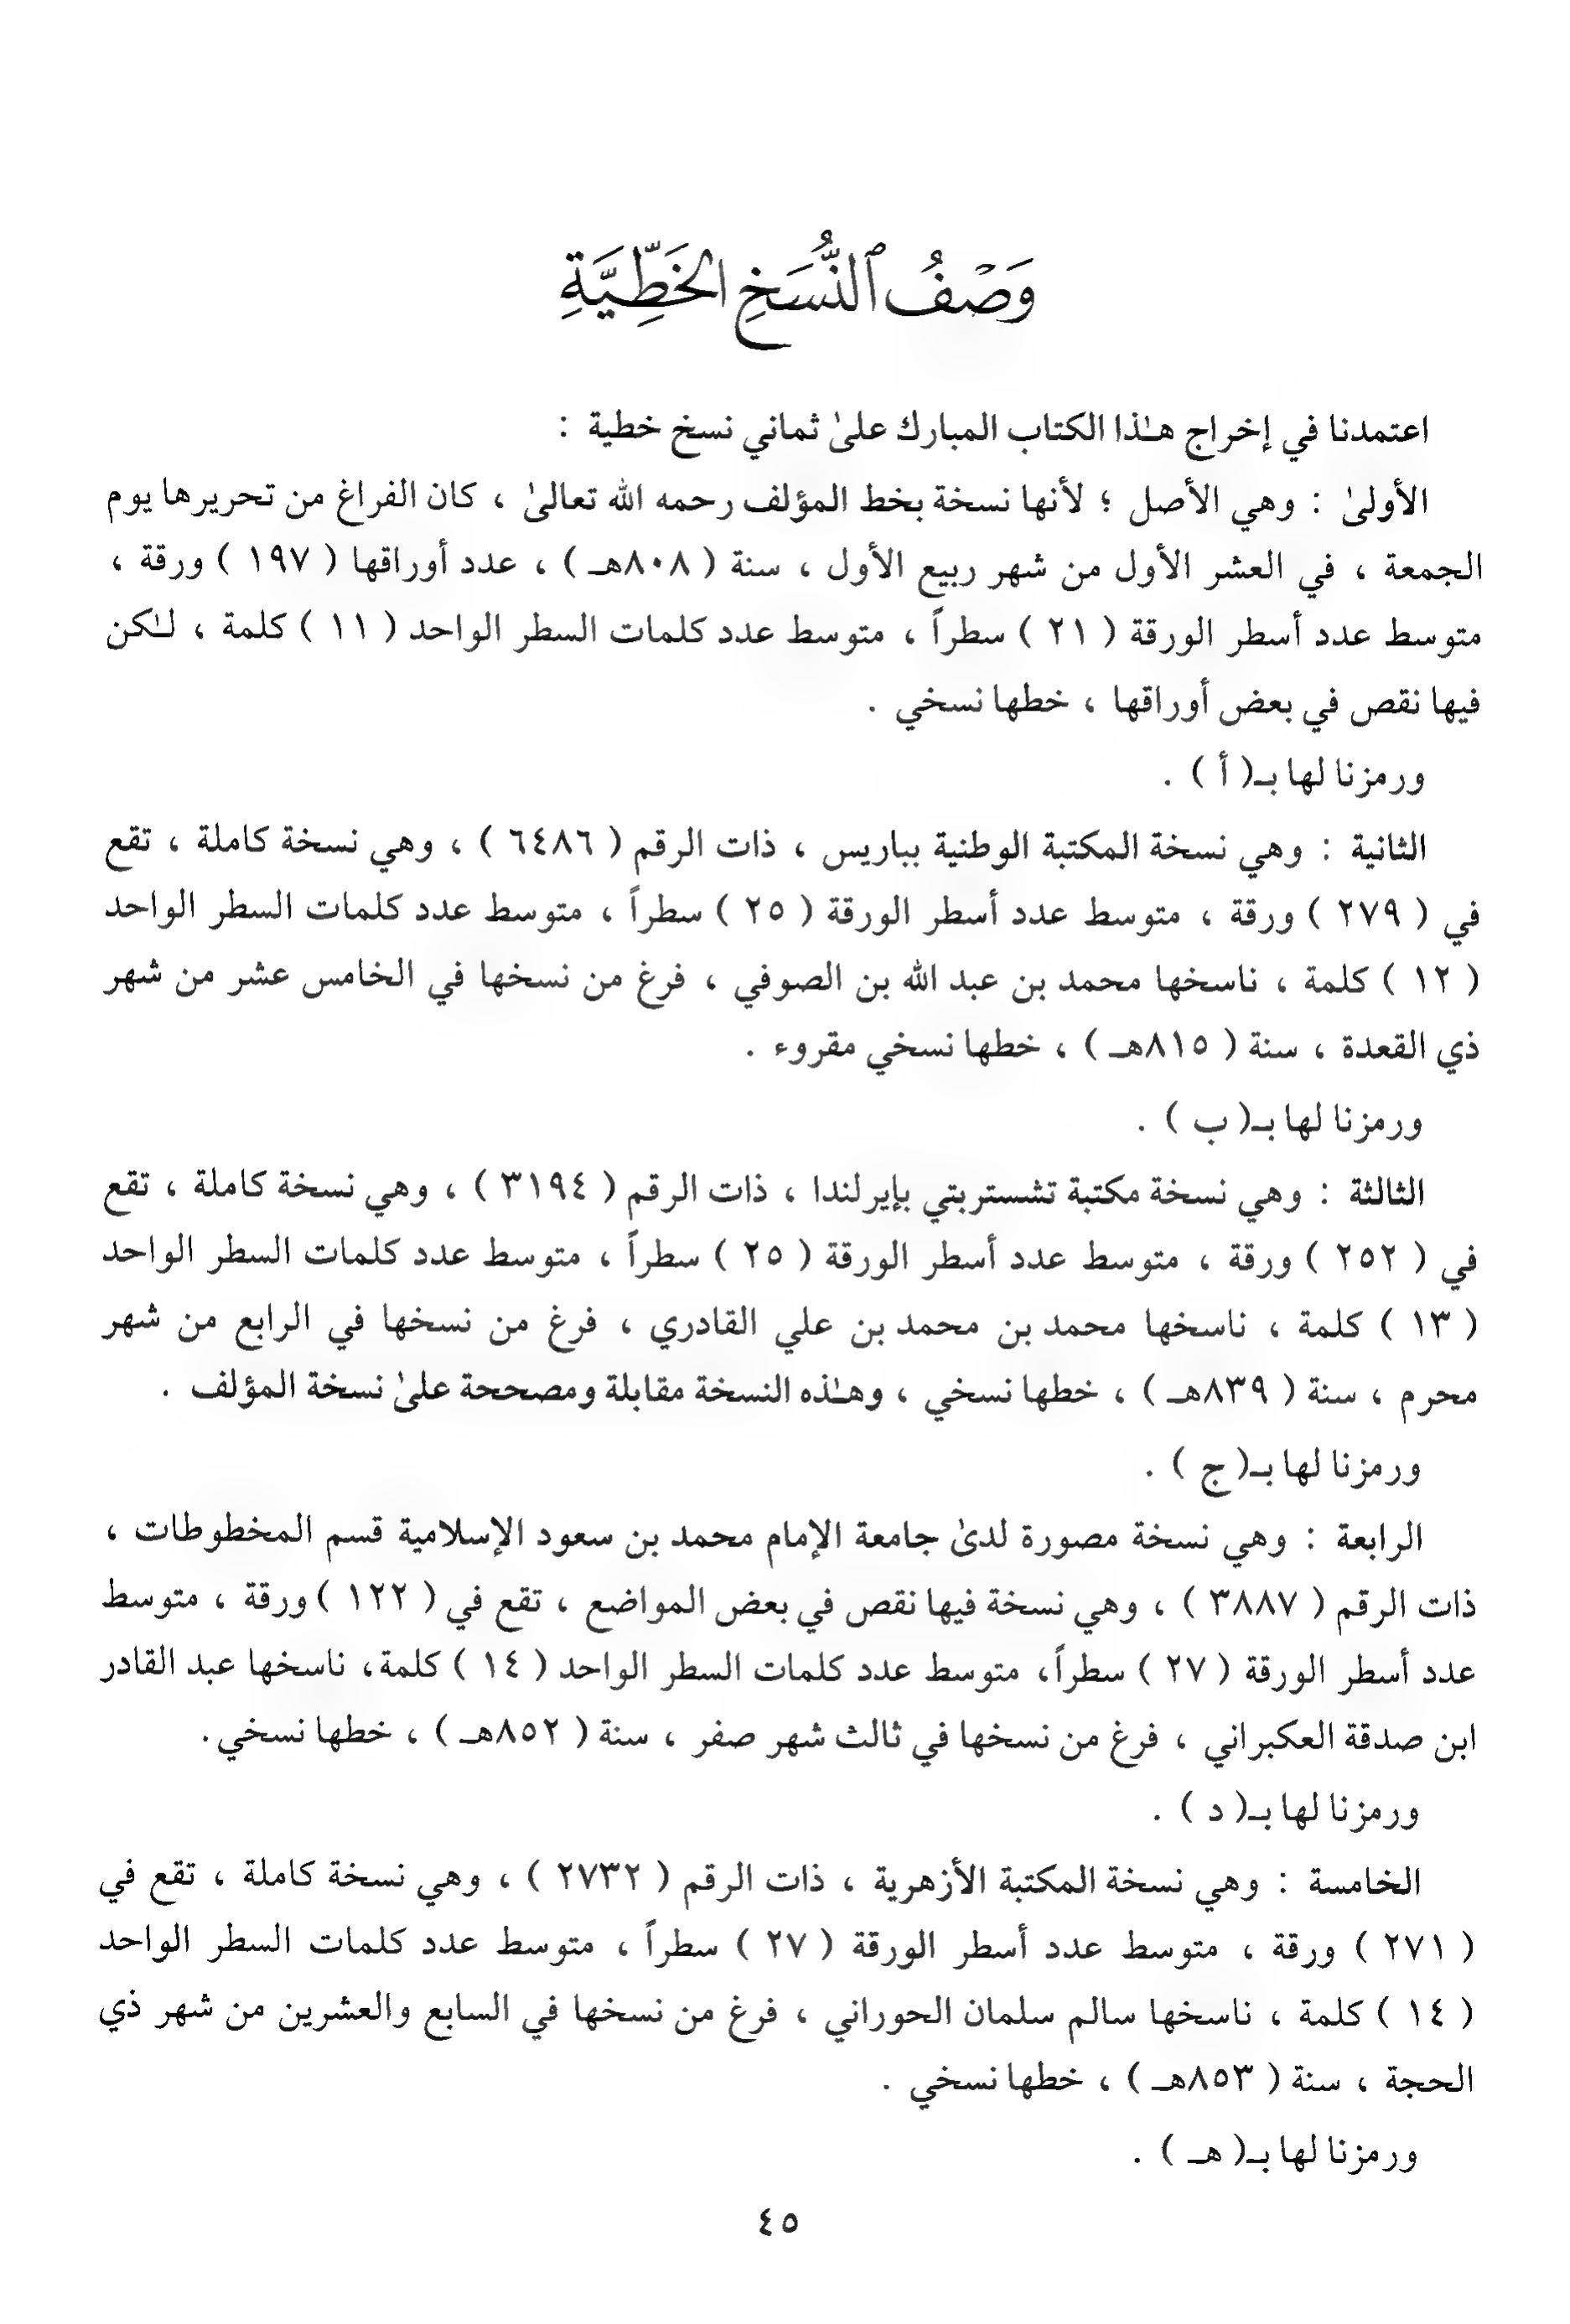 وَصْفُ ٱلنُّسَخِ الخَطِّيَّةِ
اعتمدنا في إخراج هـٰذا الكتاب المبارك علىٰ ثماني نسخ خطية :
الأولىٰ : وهي الأصل ؛ لأنها نسخة بخط المؤلف رحمه الله تعالىٰ ، كان الفراغ من تحريرها يوم
الجمعة ، في العشر الأول من شهر ربيع الأول ، سنة ( ٨٠٨هـ ) ، عدد أوراقها ( ١٩٧ ) ورقة ،
متوسط عدد أسطر الورقة ( ٢١ ) سطراً ، متوسط عدد كلمات السطر الواحد ( ١١ ) كلمة ، لـٰكن
فيها نقص في بعض أوراقها ، خطها نسخي .
ورمزنا لها بـ( أ ) .
الثانية : وهي نسخة المكتبة الوطنية بباريس ، ذات الرقم ( ٦٤٨٦ ) ، وهي نسخة كاملة ، تقع
في ( ٢٧٩ ) ورقة ، متوسط عدد أسطر الورقة ( ٢٥ ) سطراً ، متوسط عدد كلمات السطر الواحد
( ١٢ ) كلمة ، ناسخها محمد بن عبد الله بن الصوفي ، فرغ من نسخها في الخامس عشر من شهر
ذي القعدة ، سنة ( ٨١٥هـ ) ، خطها نسخي مقروء .
ورمزنا لها بـ( ب ) .
الثالثة : وهي نسخة مكتبة تشستربتي بإيرلندا ، ذات الرقم ( ٣١٩٤ ) ، وهي نسخة كاملة ، تقع
في ( ٢٥٢ ) ورقة ، متوسط عدد أسطر الورقة ( ٢٥ ) سطراً ، متوسط عدد كلمات السطر الواحد
( ١٣ ) كلمة ، ناسخها محمد بن محمد بن علي القادري ، فرغ من نسخها في الرابع من شهر
محرم ، سنة ( ٨٣٩هـ ) ، خطها نسخي ، وهـٰذه النسخة مقابلة ومصححة علىٰ نسخة المؤلف .
ورمزنا لها بـ( ج ) .
الرابعة : وهي نسخة مصورة لدىٰ جامعة الإمام محمد بن سعود الإسلامية قسم المخطوطات ،
ذات الرقم ( ٣٨٨٧ ) ، وهي نسخة فيها نقص في بعض المواضع ، تقع في ( ١٢٢ ) ورقة ، متوسط
عدد أسطر الورقة ( ٢٧ ) سطراً، متوسط عدد كلمات السطر الواحد ( ١٤ ) كلمة، ناسخها عبد القادر
ابن صدقة العكبراني ، فرغ من نسخها في ثالث شهر صفر ، سنة ( ٨٥٢هـ ) ، خطها نسخي.
ورمزنا لها بـ( د ) .
الخامسة : وهي نسخة المكتبة الأزهرية ، ذات الرقم ( ٢٧٣٢ ) ، وهي نسخة كاملة ، تقع في
( ٢٧١ ) ورقة ، متوسط عدد أسطر الورقة ( ٢٧ ) سطراً ، متوسط عدد كلمات السطر الواحد
( ١٤ ) كلمة ، ناسخها سالم سلمان الحوراني ، فرغ من نسخها في السابع والعشرين من شهر ذي
الحجة ، سنة ( ٨٥٣هـ ) ، خطها نسخي .
ورمزنا لها بـ( هـ ) .
٤٥